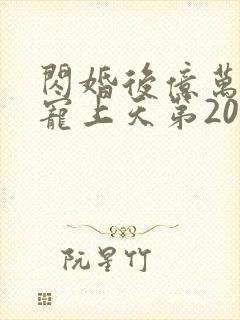 閃婚後億萬
寵上天第20
阮星竹